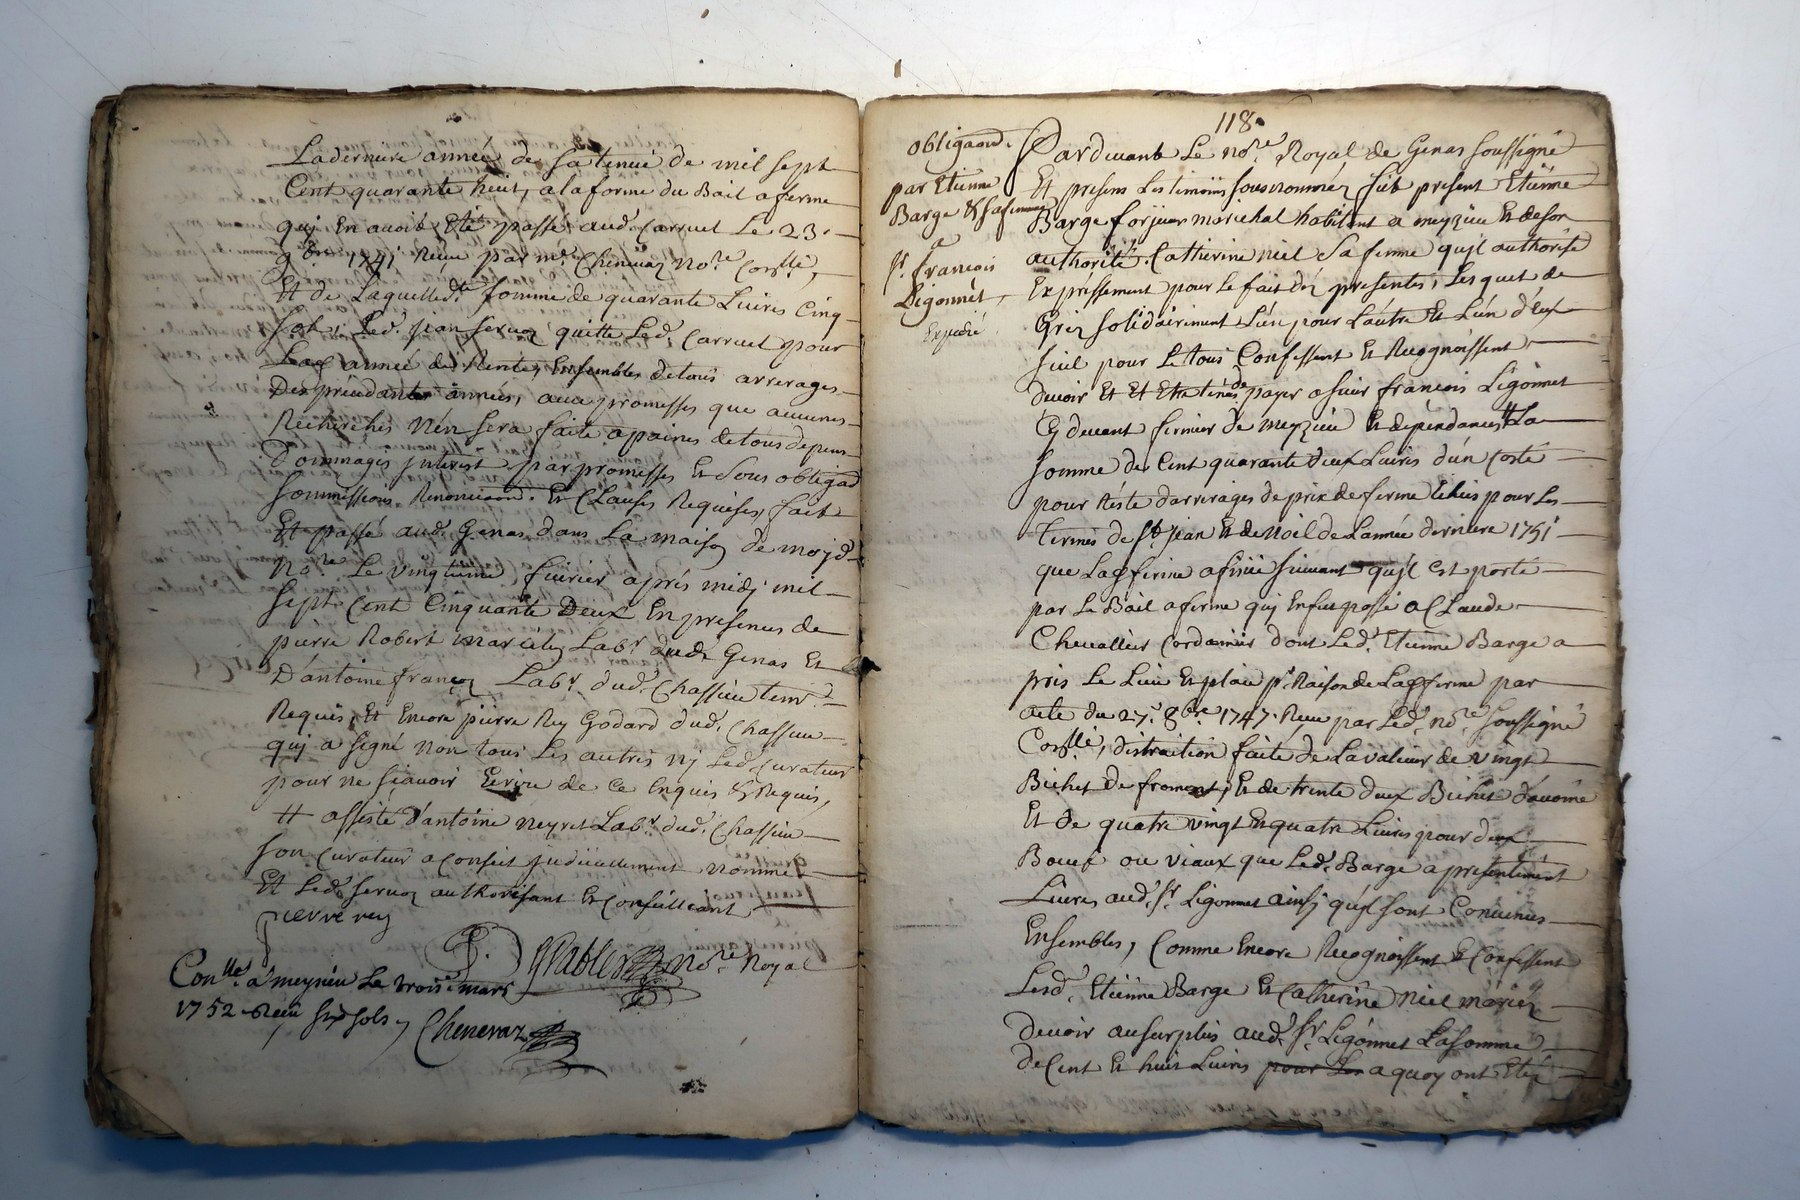 La derniere année de sa tenue de mil sept
Cent quarante huit, a la forme du Bail a ferme
qui En avoit Eté passé aud. Carruel Le 23.
9bre 1741 Reçu par me. Chenevaz nore. Conllé,
Et de Laquelledte somme de quarante Livres Cinq
sols, Led. jean quitte Led. Carruel pour
année de Rentes Ensembles de tous arrerages
Des précédantes années, avec promesses que aucunes
Recherches n'en sera faite a paines de tous depens
Dommages jnterest par promesses Et sous obligaon
sommissions Renonciaons. Et Clauses Requises, fait
Et passé aud. Genas dans La maison de moyd.
nore. Le vingtieme fevrier aprés midj mil
sept Cent Cinquante Deux En presences de
pierre Robert Labr. dud. Genas Et
D'antoine françois Labr. dud. Chassieu
Requis, Et Encore pierre Rey Godard dud. Chassieu
quj a signé non tous Les autres nj Led. curateur
pour ne sçavoir Ecrire de Ce Enquis & Requis,
# assisté d'antoine neyret Labr. dud. Chassieu
son curateur a conseil judiciellement nommé
Et Led. authorisant Et Conseilleant
pierre rey
nore. Royal
Conlle. a meyzieu Le trois.e mars
1752 Reçu six sols
Chenevaz
118
obligaon.
par Etienne
Barge & sa femme
Sr. françois
Ligonnet
Expedié
Pardevant Le nore. Royal de Genas soussigné
Et presens Les temoins sousnommez fut present Etienne
Barge forjeur marechal habitant a meyzieu Et de son
authorité Catherine niel sa femme qu'jl authorise
Expressement pour Le fait des presentes, Lesquels de
Grez solidairement L'un pour L'autre Et L'un d'Eux
seul pour Le tous Confessent Et Recognoissent
devoir Et Et Etre tenus de payer a sieur françois Ligonnet
Cy devant fermier de meyzieu Et dependances La
somme de Cent quarante deux Livres d'un Costé
pour Réste d'arrerages de prix de ferme Echus pour Les
termes de St. jean Et de noël de L'année derniere 1751
que La ferme a finie suivant qu'jl Est porté
par Le Bail a ferme quj En fut passé a Claude
Chevallier Cordonnier dont Led. Etienne Barge a
pris Le Lieu Et place pr. Raison de Lad. ferme par
acte du 27. 8bre 1747. Reçu par Led. nore. soussigné
Conllé, distraction faite de La valeur de vingt
Bichet de froment, Et de trente deux Bichet d'avoine
Et de quatre vingt Et quatre Livres pour deux
Boeuf ou viaux que Led. Barge a presentement
Livrés aud. sr. Ligonnet ainsj qu'jl sont Convenus
Ensembles, Comme Encore Recognoissent Et Confessent
Lesd. Etienne Barge Et Catherine niel mariez
devoir au surplus aud. sr. Ligonnet La somme
de Cent Et huit Livres a quoy ont Eté